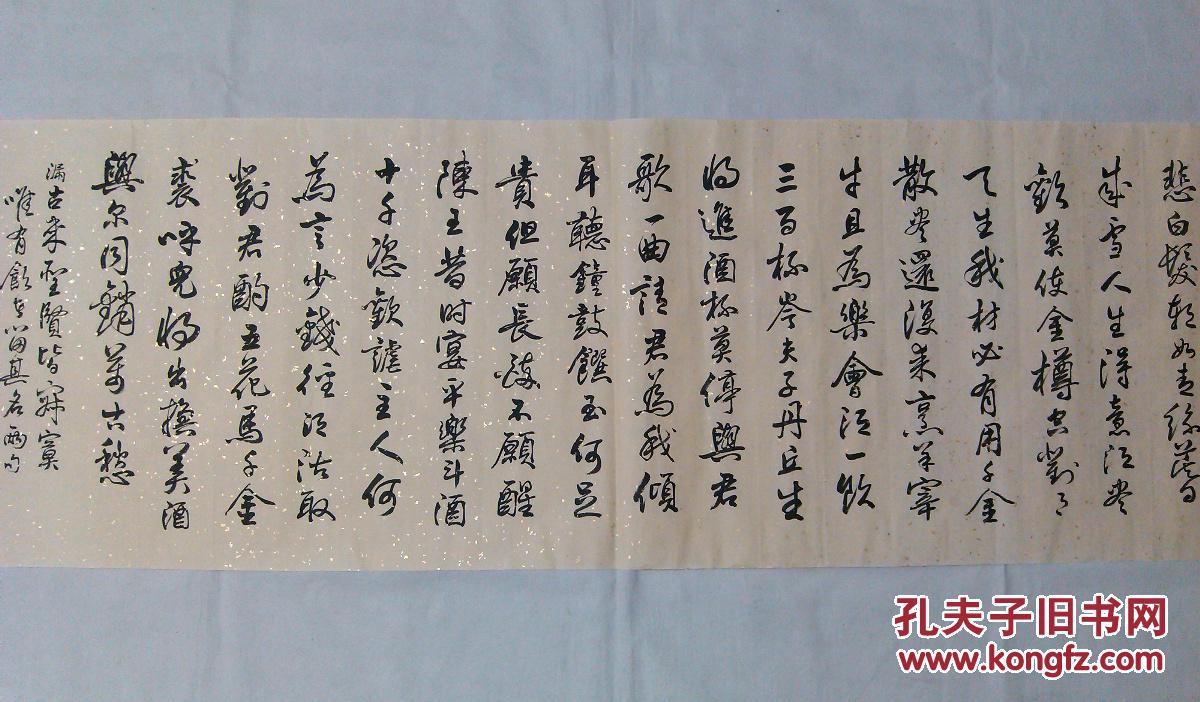 悲白髮朝如青絲暮
成雪人生得意須盡
歡莫使金樽空對月
天生我材必有用千金
散盡還復来烹羊宰
牛且為樂會須一飲
三百杯岑夫子丹丘生
将進酒杯莫停與君
歌一曲請君為我傾
耳聽鐘鼓饌玉何足
貴但願長醉不願醒
陳王昔時宴平樂斗酒
十千恣歡謔主人何
為言少錢徑須沽取
對君酌五花馬千金
裘呼兒将出換美酒
與尔同銷萬古愁
漏古来聖賢皆寂寞
唯有飲者留其名兩句
孔夫子旧书网
www.kongfz.com